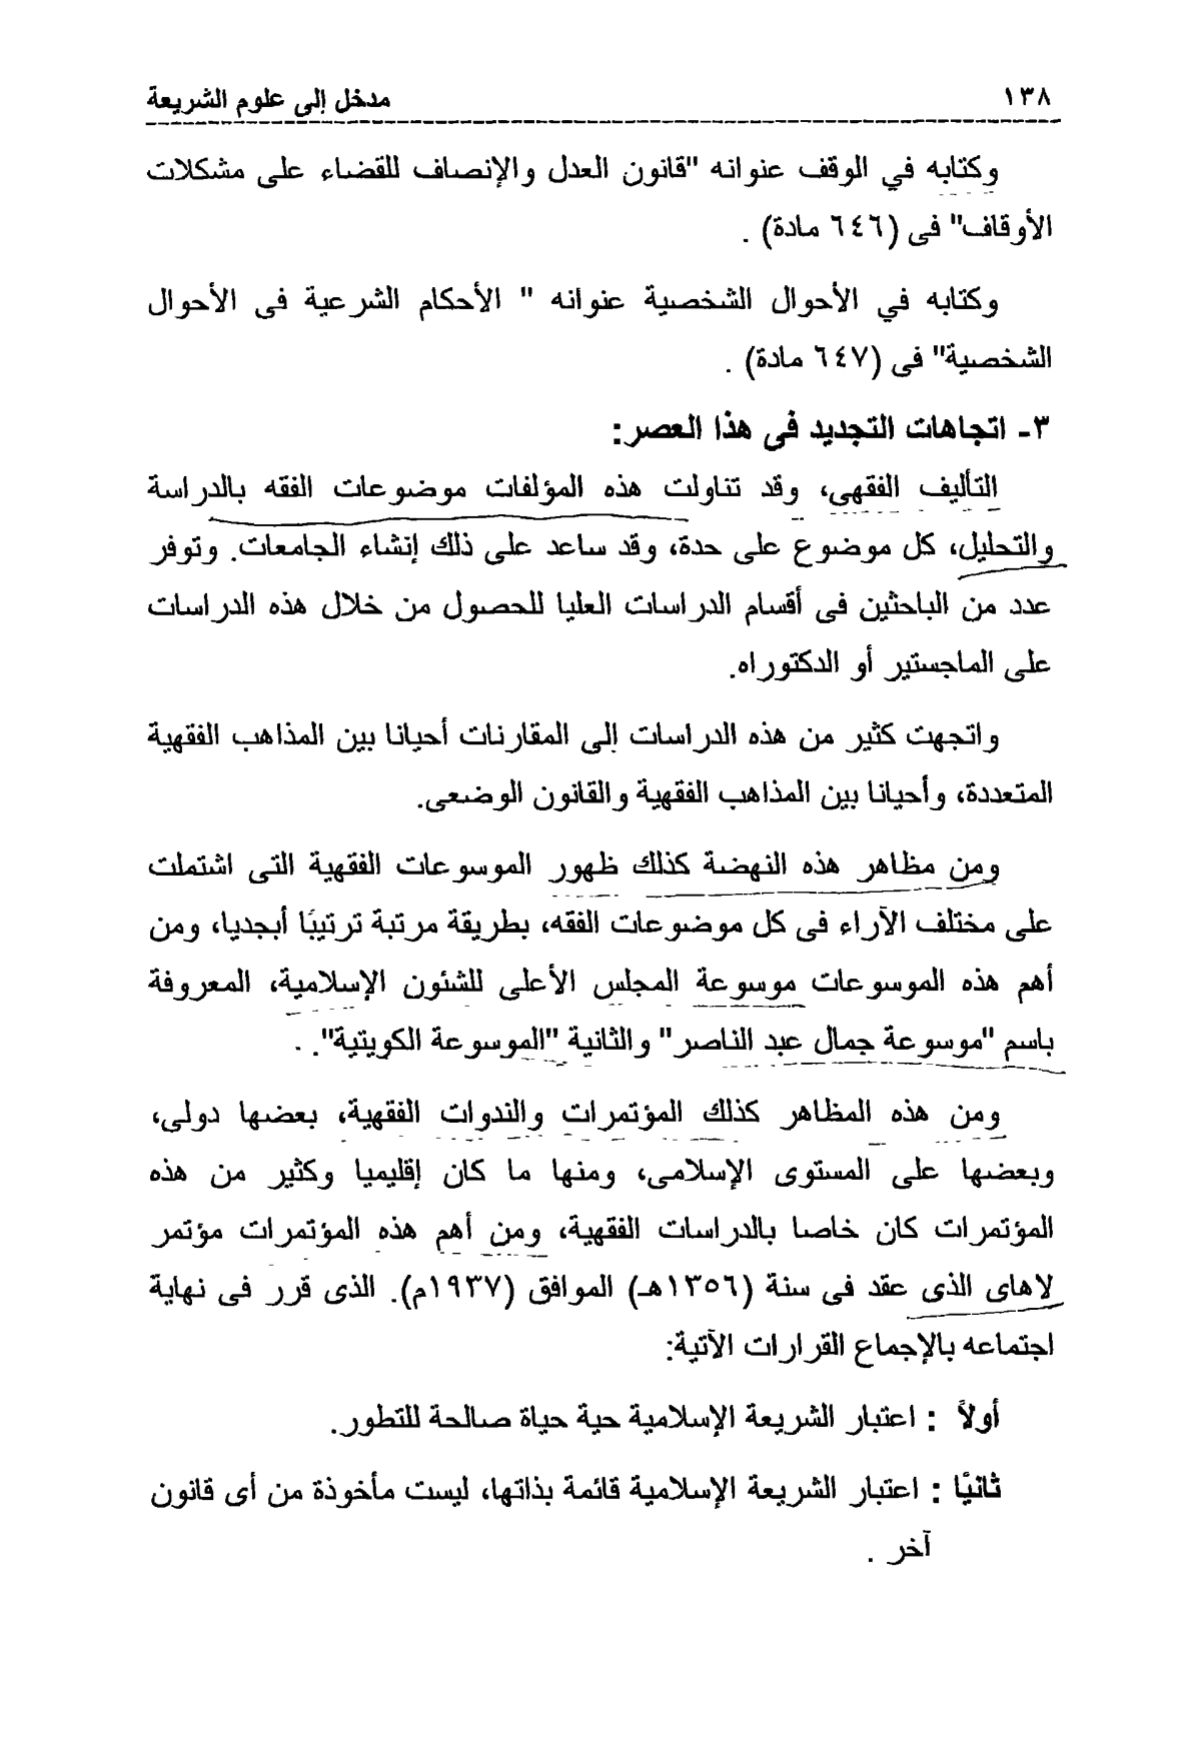 ١٣٨
مدخل إلى علوم الشريعة
وكتابه في الوقف عنوانه "قانون العدل والإنصاف للقضاء على مشكلات
الأوقاف" فى (٦٤٦ مادة) .
وكتابه في الأحوال الشخصية عنوانه " الأحكام الشرعية فى الأحوال
الشخصية" فى (٦٤٧ مادة) .
٣- اتجاهات التجديد فى هذا العصر:
التأليف الفقهى، وقد تناولت هذه المؤلفات موضوعات الفقه بالدراسة
والتحليل، كل موضوع على حدة، وقد ساعد على ذلك إنشاء الجامعات. وتوفر
عدد من الباحثين فى أقسام الدراسات العليا للحصول من خلال هذه الدراسات
على الماجستير أو الدكتوراه.
واتجهت كثير من هذه الدراسات إلى المقارنات أحيانا بين المذاهب الفقهية
المتعددة، وأحيانا بين المذاهب الفقهية والقانون الوضعى.
ومن مظاهر هذه النهضة كذلك ظهور الموسوعات الفقهية التى اشتملت
على مختلف الآراء فى كل موضوعات الفقه، بطريقة مرتبة ترتيبًا أبجديا، ومن
أهم هذه الموسوعات موسوعة المجلس الأعلى للشئون الإسلامية، المعروفة
باسم "موسوعة جمال عبد الناصر" والثانية "الموسوعة الكويتية". .
ومن هذه المظاهر كذلك المؤتمرات والندوات الفقهية، بعضها دولى،
وبعضها على المستوى الإسلامى، ومنها ما كان إقليميا وكثير من هذه
المؤتمرات كان خاصا بالدراسات الفقهية، ومن أهم هذه المؤتمرات مؤتمر
لاهاى الذى عقد فى سنة (١٣٥٦هـ) الموافق (١٩٣٧م). الذى قرر فى نهاية
اجتماعه بالإجماع القرارات الآتية:
أولاً : اعتبار الشريعة الإسلامية حية حياة صالحة للتطور.
ثانيًا : اعتبار الشريعة الإسلامية قائمة بذاتها، ليست مأخوذة من أى قانون
آخر .